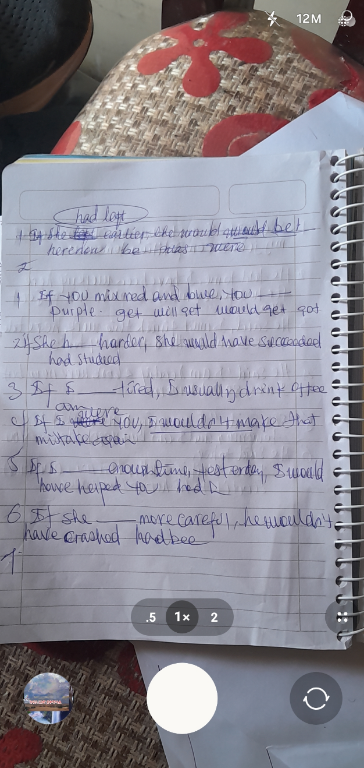 12M
had left
1 If She earlier, she would be
herenow be was were
2
1 If you mix red and blue, you ___
purple. get will get would get got
2 If She h___ harder, she would have succeeded
had studied
3 If I ___ tired, I usually drink coffee
am were
4 If I were you, I wouldn't make that
mistake again
5 If I ___ enough time, yesterday, I would
have helped yo had h
6 If she ___ more careful, he wouldn't
have crashed hadbee
7
.5 1× 2